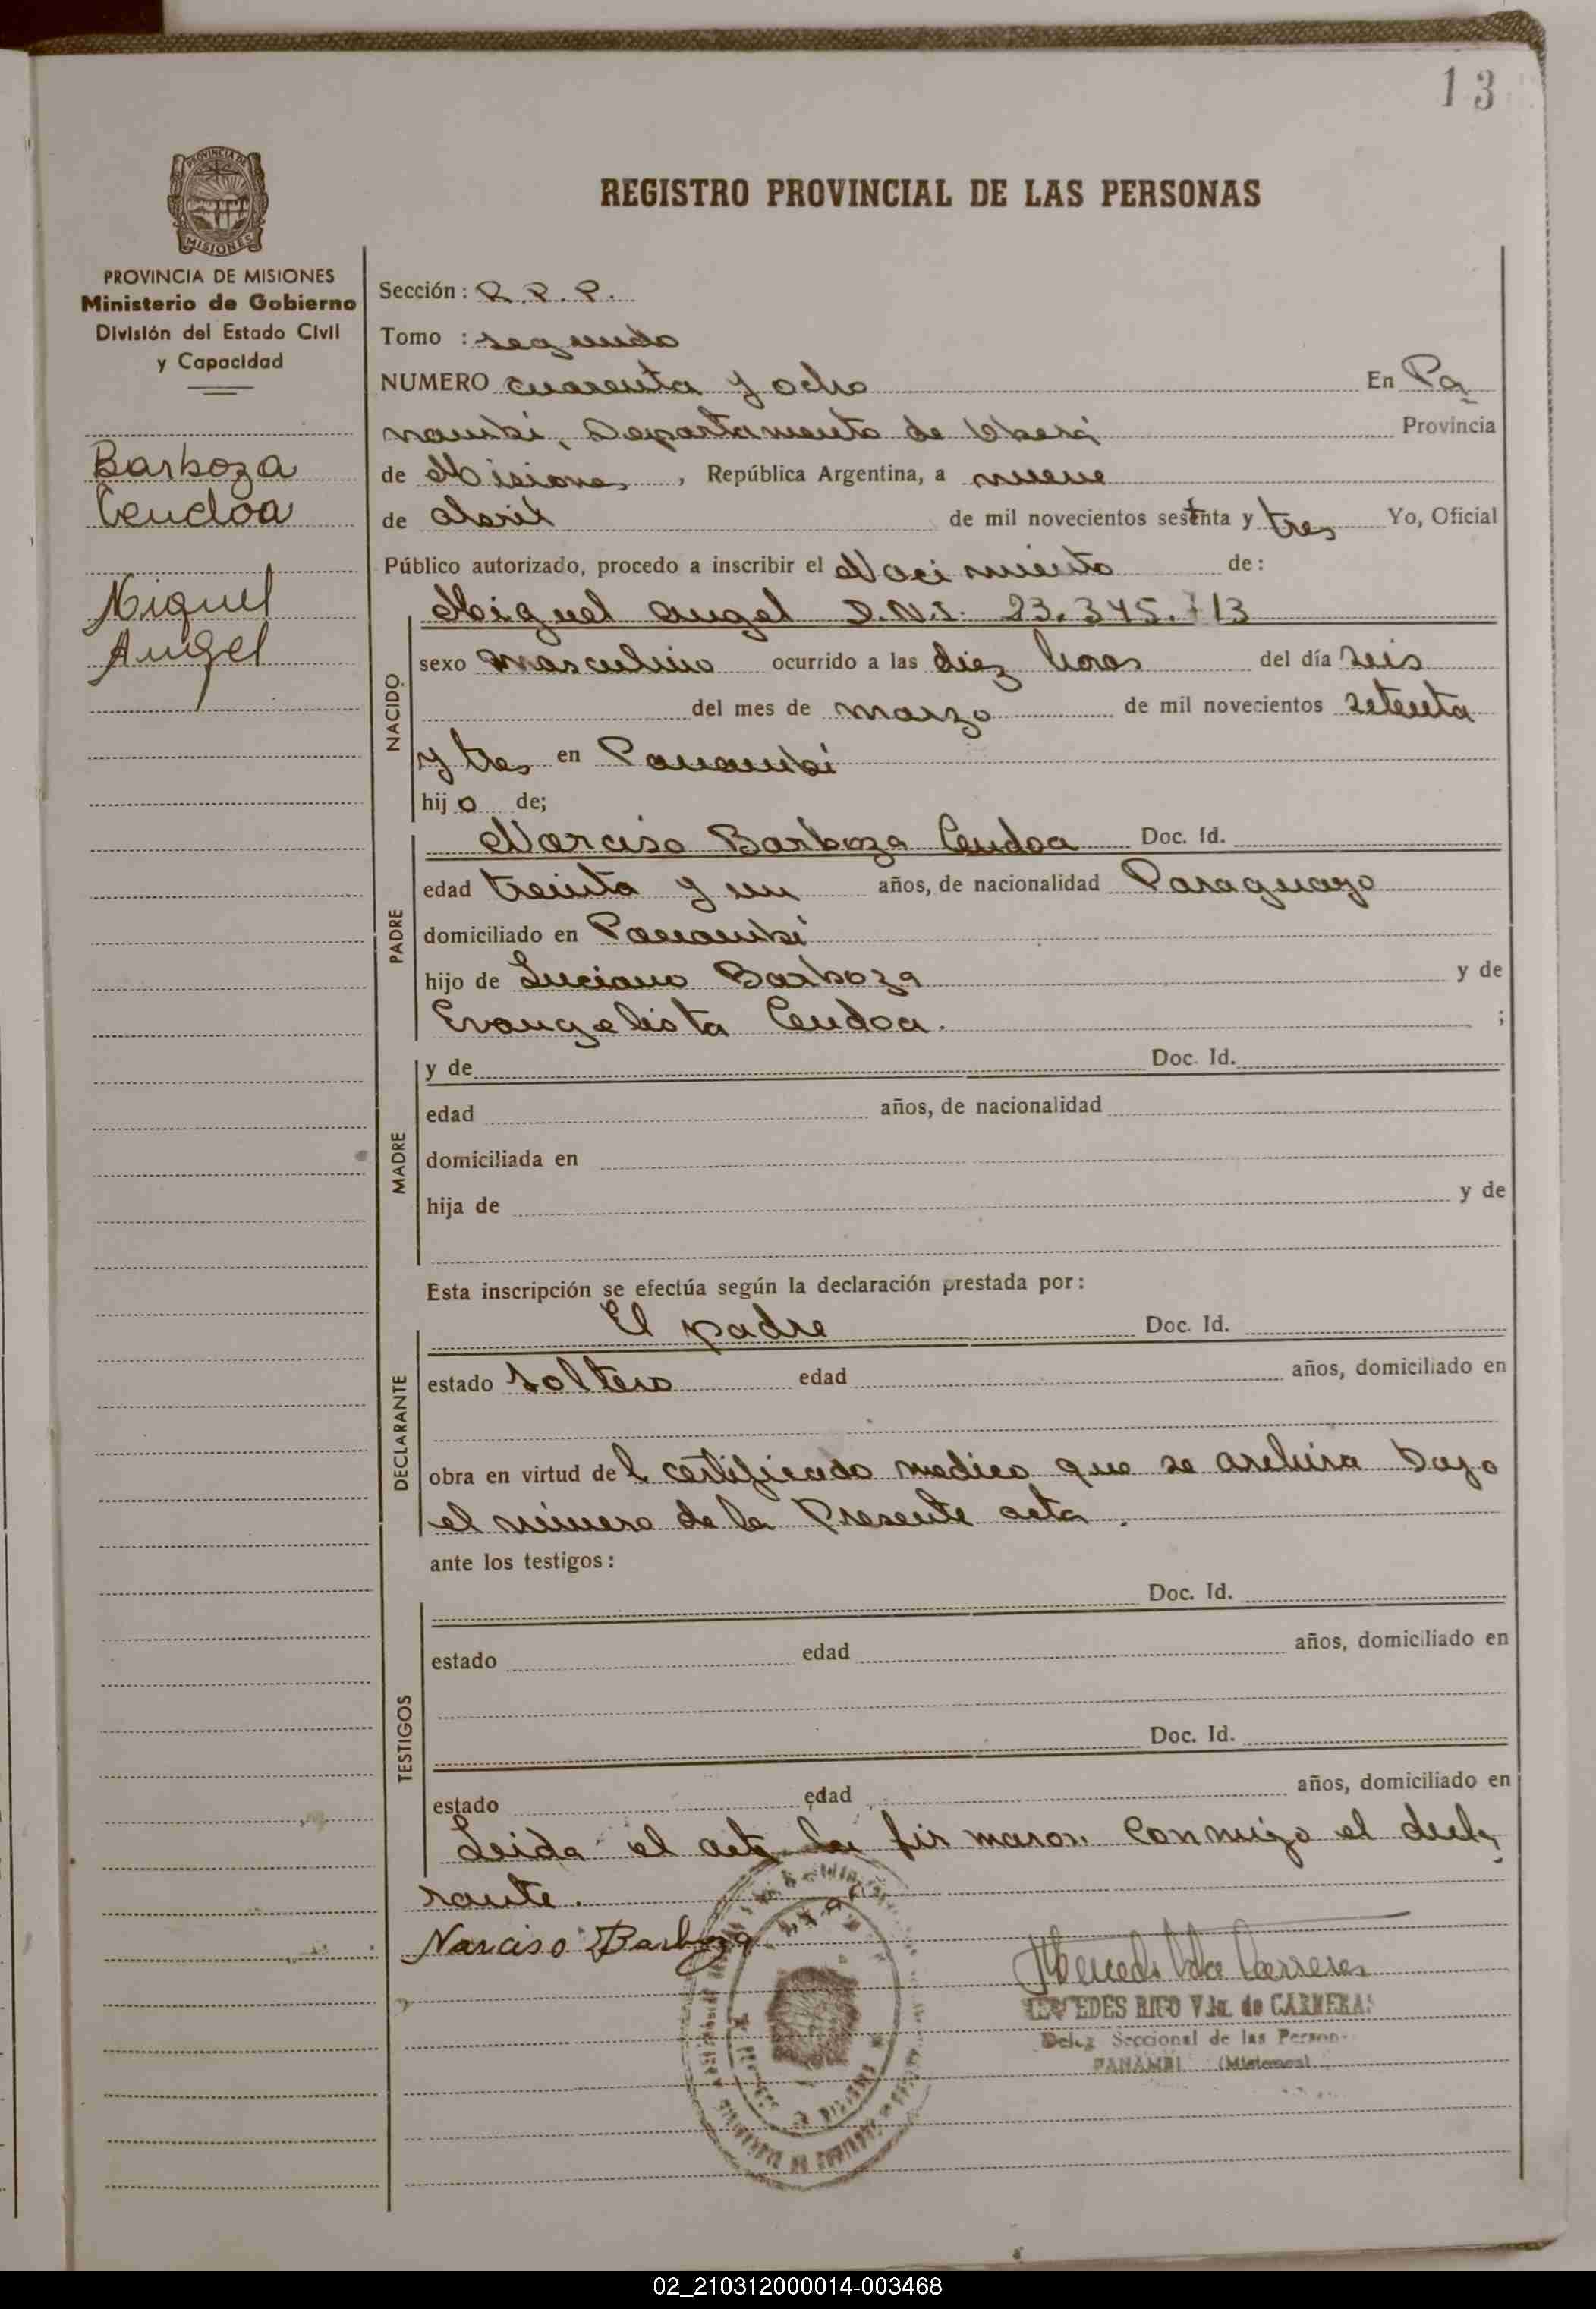 13
PROVINCIA DE MISIONES
REGISTRO PROVINCIAL DE LAS PERSONAS
PROVINCIA DE MISIONES
Ministerio de Gobierno
División del Estado Civil
y Capacidad
Barboza
Cendoa
Miguel
Angel
Sección: R.P.P.
Tomo : segundo
NUMERO cuarenta y ocho En Pa
nambi, Departamento de Oberá Provincia
de Misiones, República Argentina, a nueve
de Abril de mil novecientos setenta y tres Yo, Oficial
Público autorizado, procedo a inscribir el Nacimiento de:
NACIDO
Miguel Angel D.N.I. 23.345.713
sexo masculino ocurrido a las diez horas del día seis
del mes de marzo de mil novecientos setenta
y tres en Panambí
hijo de;
PADRE
Narciso Barboza Cendoa Doc. Id.
edad treinta y un años, de nacionalidad Paraguayo
domiciliado en Panambí
hijo de Luciano Barboza y de
Evangelista Cendoa. ;
MADRE
y de Doc. Id.
edad años, de nacionalidad
domiciliada en
hija de y de
Esta inscripción se efectúa según la declaración prestada por:
DECLARANTE
El padre Doc. Id.
estado soltero edad años, domiciliado en
obra en virtud del certificado medico que se archiva bajo
el número de la Presente acta.
ante los testigos:
TESTIGOS
Doc. Id.
estado edad años, domiciliado en
Doc. Id.
estado edad años, domiciliado en
Leida el acta la firmaron Conmigo el decla
rante.
Narciso Barboza
MERCEDES RICO Vda. de CARRERAS
Deleg Seccional de las Person
PANAMBI (Misiones)
02_210312000014-003468